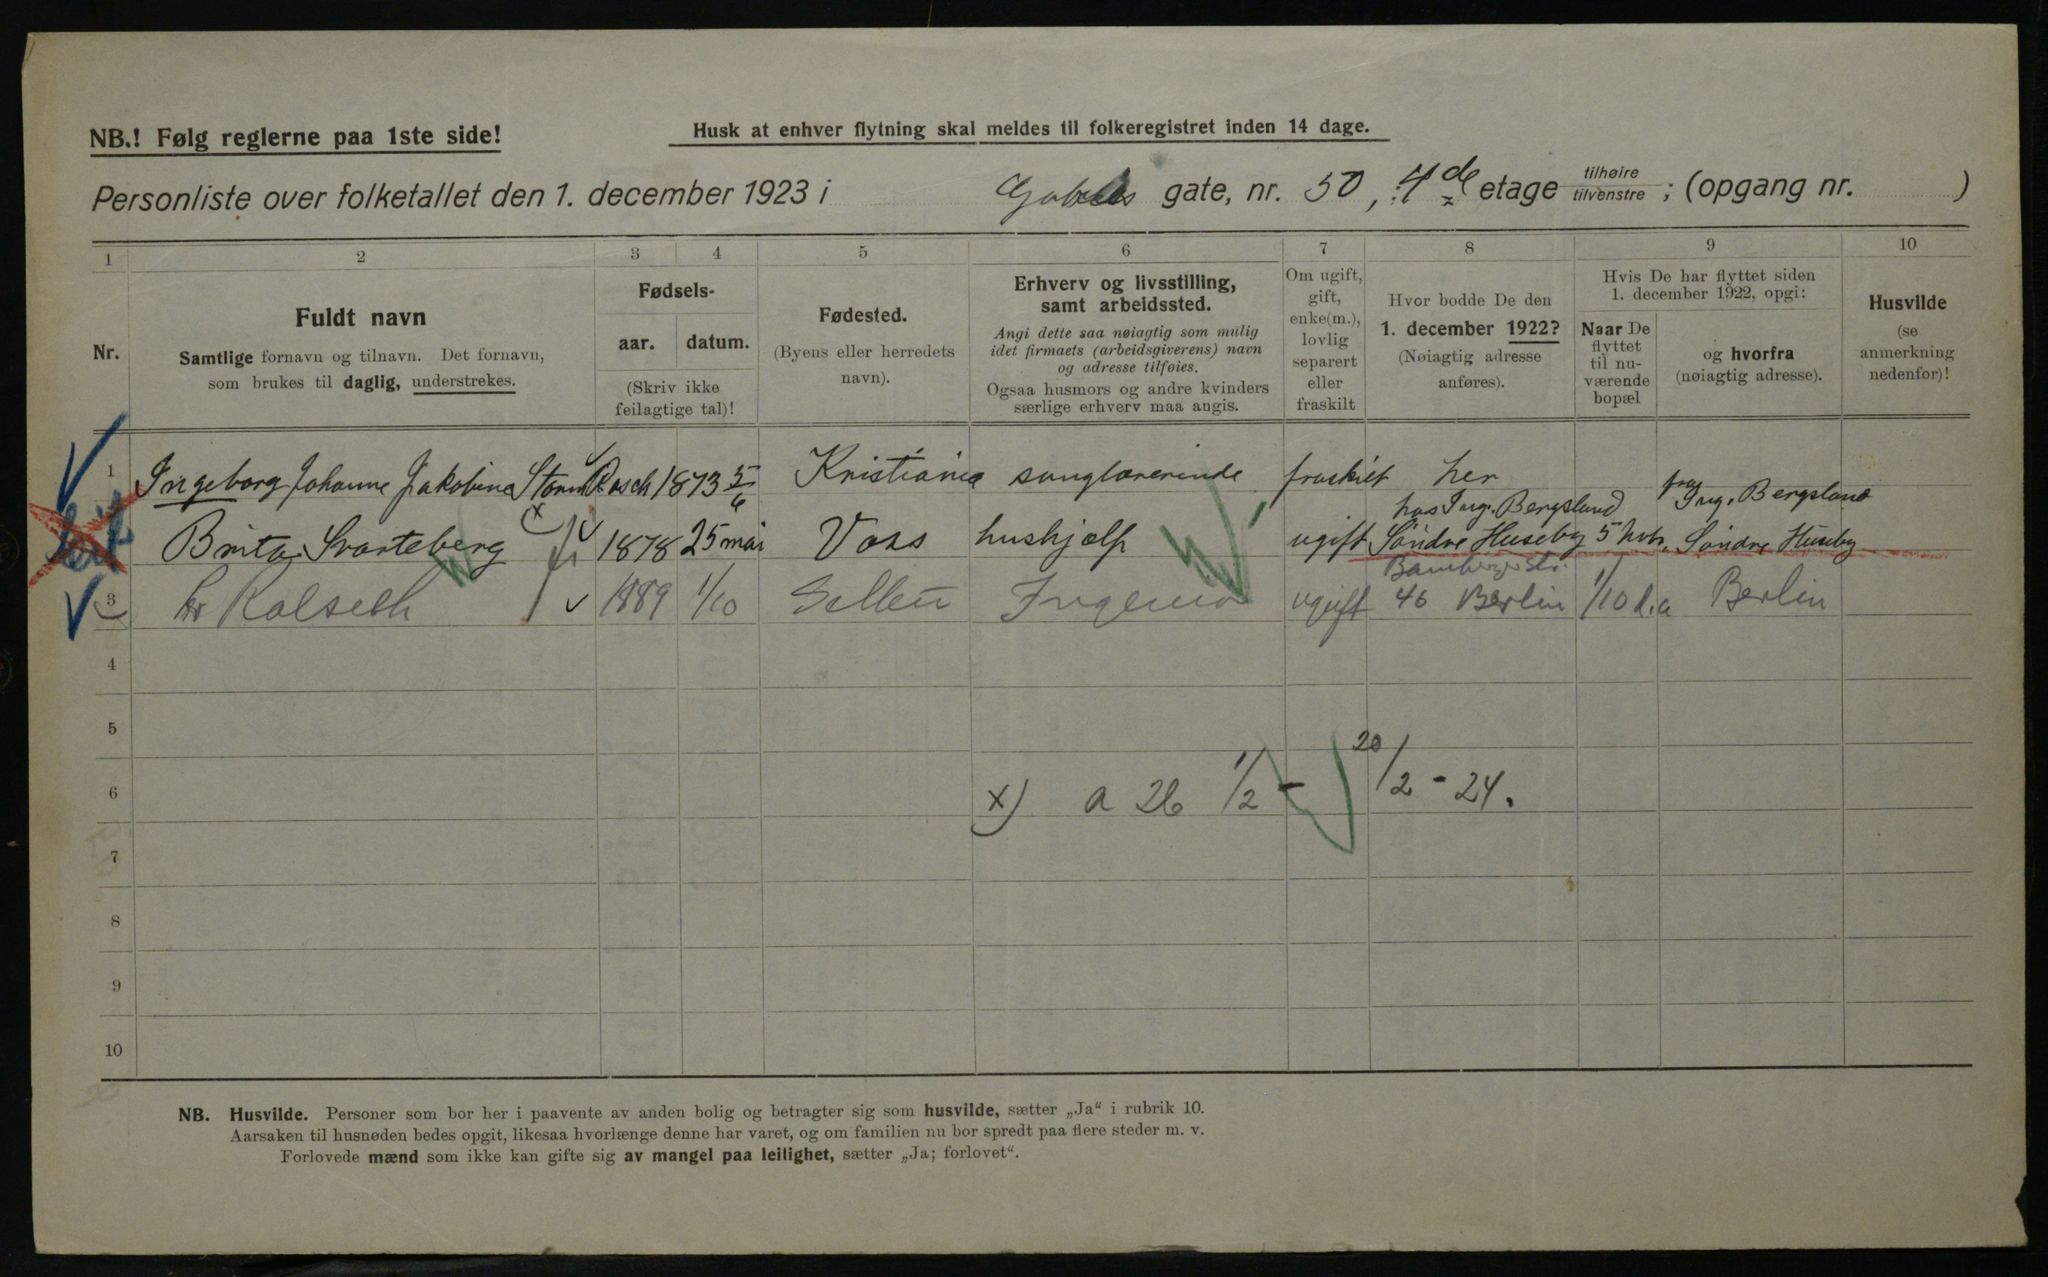 NB.! Følg reglerne paa 1ste side!
Husk at enhver flytning skal meldes til folkeregistret inden 14 dage.
Personliste over folketallet den 1. december 1923 i Gabels gate, nr. 50, 4de etage tilhøire tilvenstre ; (opgang nr. )
1 2 3 4 5 6 7 8 9 10
Nr.
Fuldt navn
Samtlige fornavn og tilnavn. Det fornavn,
som brukes til daglig, understrekes.
Fødsels-
aar. datum.
(Skriv ikke
feilagtige tal)!
Fødested.
(Byens eller herredets
navn).
Erhverv og livsstilling,
samt arbeidssted.
Angi dette saa nøiagtig som mulig
idet firmaets (arbeidsgiverens) navn
og adresse tilføies.
Ogsaa husmors og andre kvinders
særlige erhverv maa angis.
Om ugift,
gift,
enke(m.),
lovlig
separert
eller
fraskilt
Hvor bodde De den
1. december 1922?
(Nøiagtig adresse
anføres).
Hvis De har flyttet siden
1. december 1922, opgi:
Naar De
flyttet
til nu-
værende
bopæl
og hvorfra
(nøiagtig adresse).
Husvilde
(se
anmerkning
nedenfor)!
1 Ingeborg Johanne Jakobine Storm Rasch 1873 5/6 Kristiania sanglærerinde fraskilt her
hos Ing. Bergsland fra Ing. Bergsland
Brita Svarteberg x) 1878 25 mai Voss hushjælp ugift Søndre Huseby 5 hvbr. Søndre Huseby
Bambergerstr.
3 hr Rolseth 1889 1/10 ugift 46 Berlin 1/10 d.a Berlin
4
5
6 x) a 26 1/2 - 20/2 - 24.
7
8
9
10
NB. Husvilde. Personer som bor her i paavente av anden bolig og betragter sig som husvilde, sætter „Ja“ i rubrik 10.
Aarsaken til husnøden bedes opgit, likesaa hvorlænge denne har varet, og om familien nu bor spredt paa flere steder m. v.
Forlovede mænd som ikke kan gifte sig av mangel paa leilighet, sætter „Ja; forlovet“.